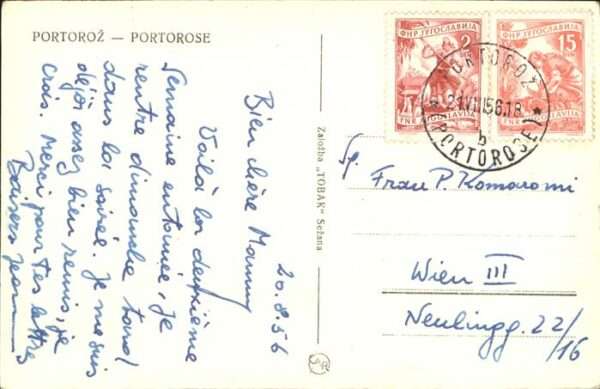 PORTOROŽ — PORTOROSE
20.8.56
Bien chère Mammy
Voilà la deuxième
Semaine entamée, je
rentre dimanche tard
dans la soirée. Je me suis
déjà assez bien remis, je
crois. Merci pour tes lettres
Baisers Jean
Založba „TOBAK" Sežana
ФНР ЈУГОСЛАВИЈА
2
FNR JUGOSLAVIJA
ФНР ЈУГОСЛАВИЈА
15
PORTOROŽ
21.VIII56.18
b
(PORTOROSE)
Sp.
Frau P. Komaromi
Wien III
Neulingg. 22/
16